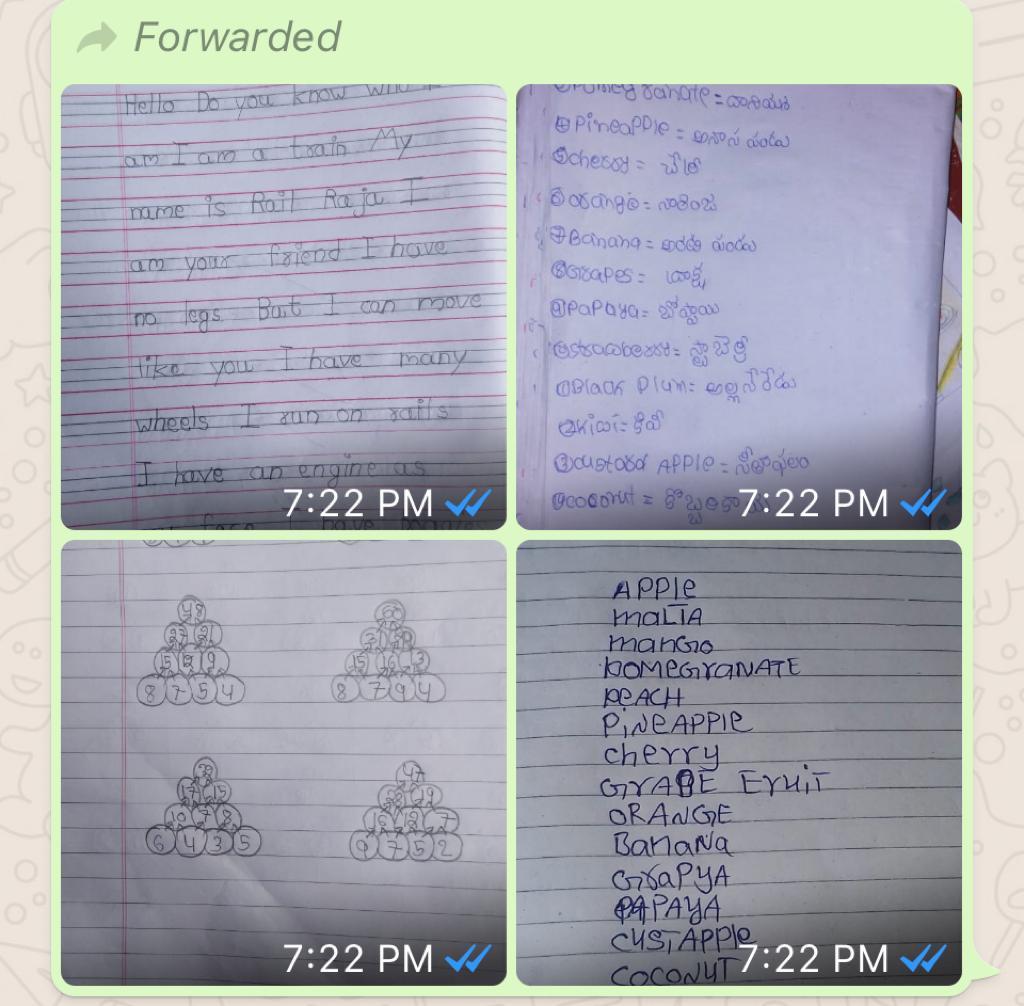 Forwarded
Hello Do you know who I
am I am a train My
name is Rail Raja I
am your friend I have
no legs But I can move
like you I have many
wheels I run on rails
I have an engine as
my face I have bogies
7:22 PM
Pomegranate = దానిమ్మ
④Pineapple = అనాస పండు
⑤cherry = చెర్రి
⑥orange = నారింజ
⑦Banana = అరటి పండు
⑧Grapes = ద్రాక్ష
⑨PaPaya = బొప్పాయి
strawberry = స్ట్రాబెర్రీ
①Black Plum = అల్లనేరేడు
②kiwi = కివీ
③custard APPle = సీతాఫలం
④coconut = కొబ్బరికాయ
7:22 PM
48
27 21
15 12 9
8 7 5 4
60
15 16 13
8 7 9 4
32
17 15
10 7 8
6 4 3 5
47
28 19
16 12 7
9 7 5 2
7:22 PM
APPle
maLTA
manGo
pomeGraNATE
peACH
PiNeAPPle
cherry
GrAPE Eruit
ORANGE
BaNaNa
GraPYA
PAPAYA
CUSTAPPle
COCONUT
7:22 PM